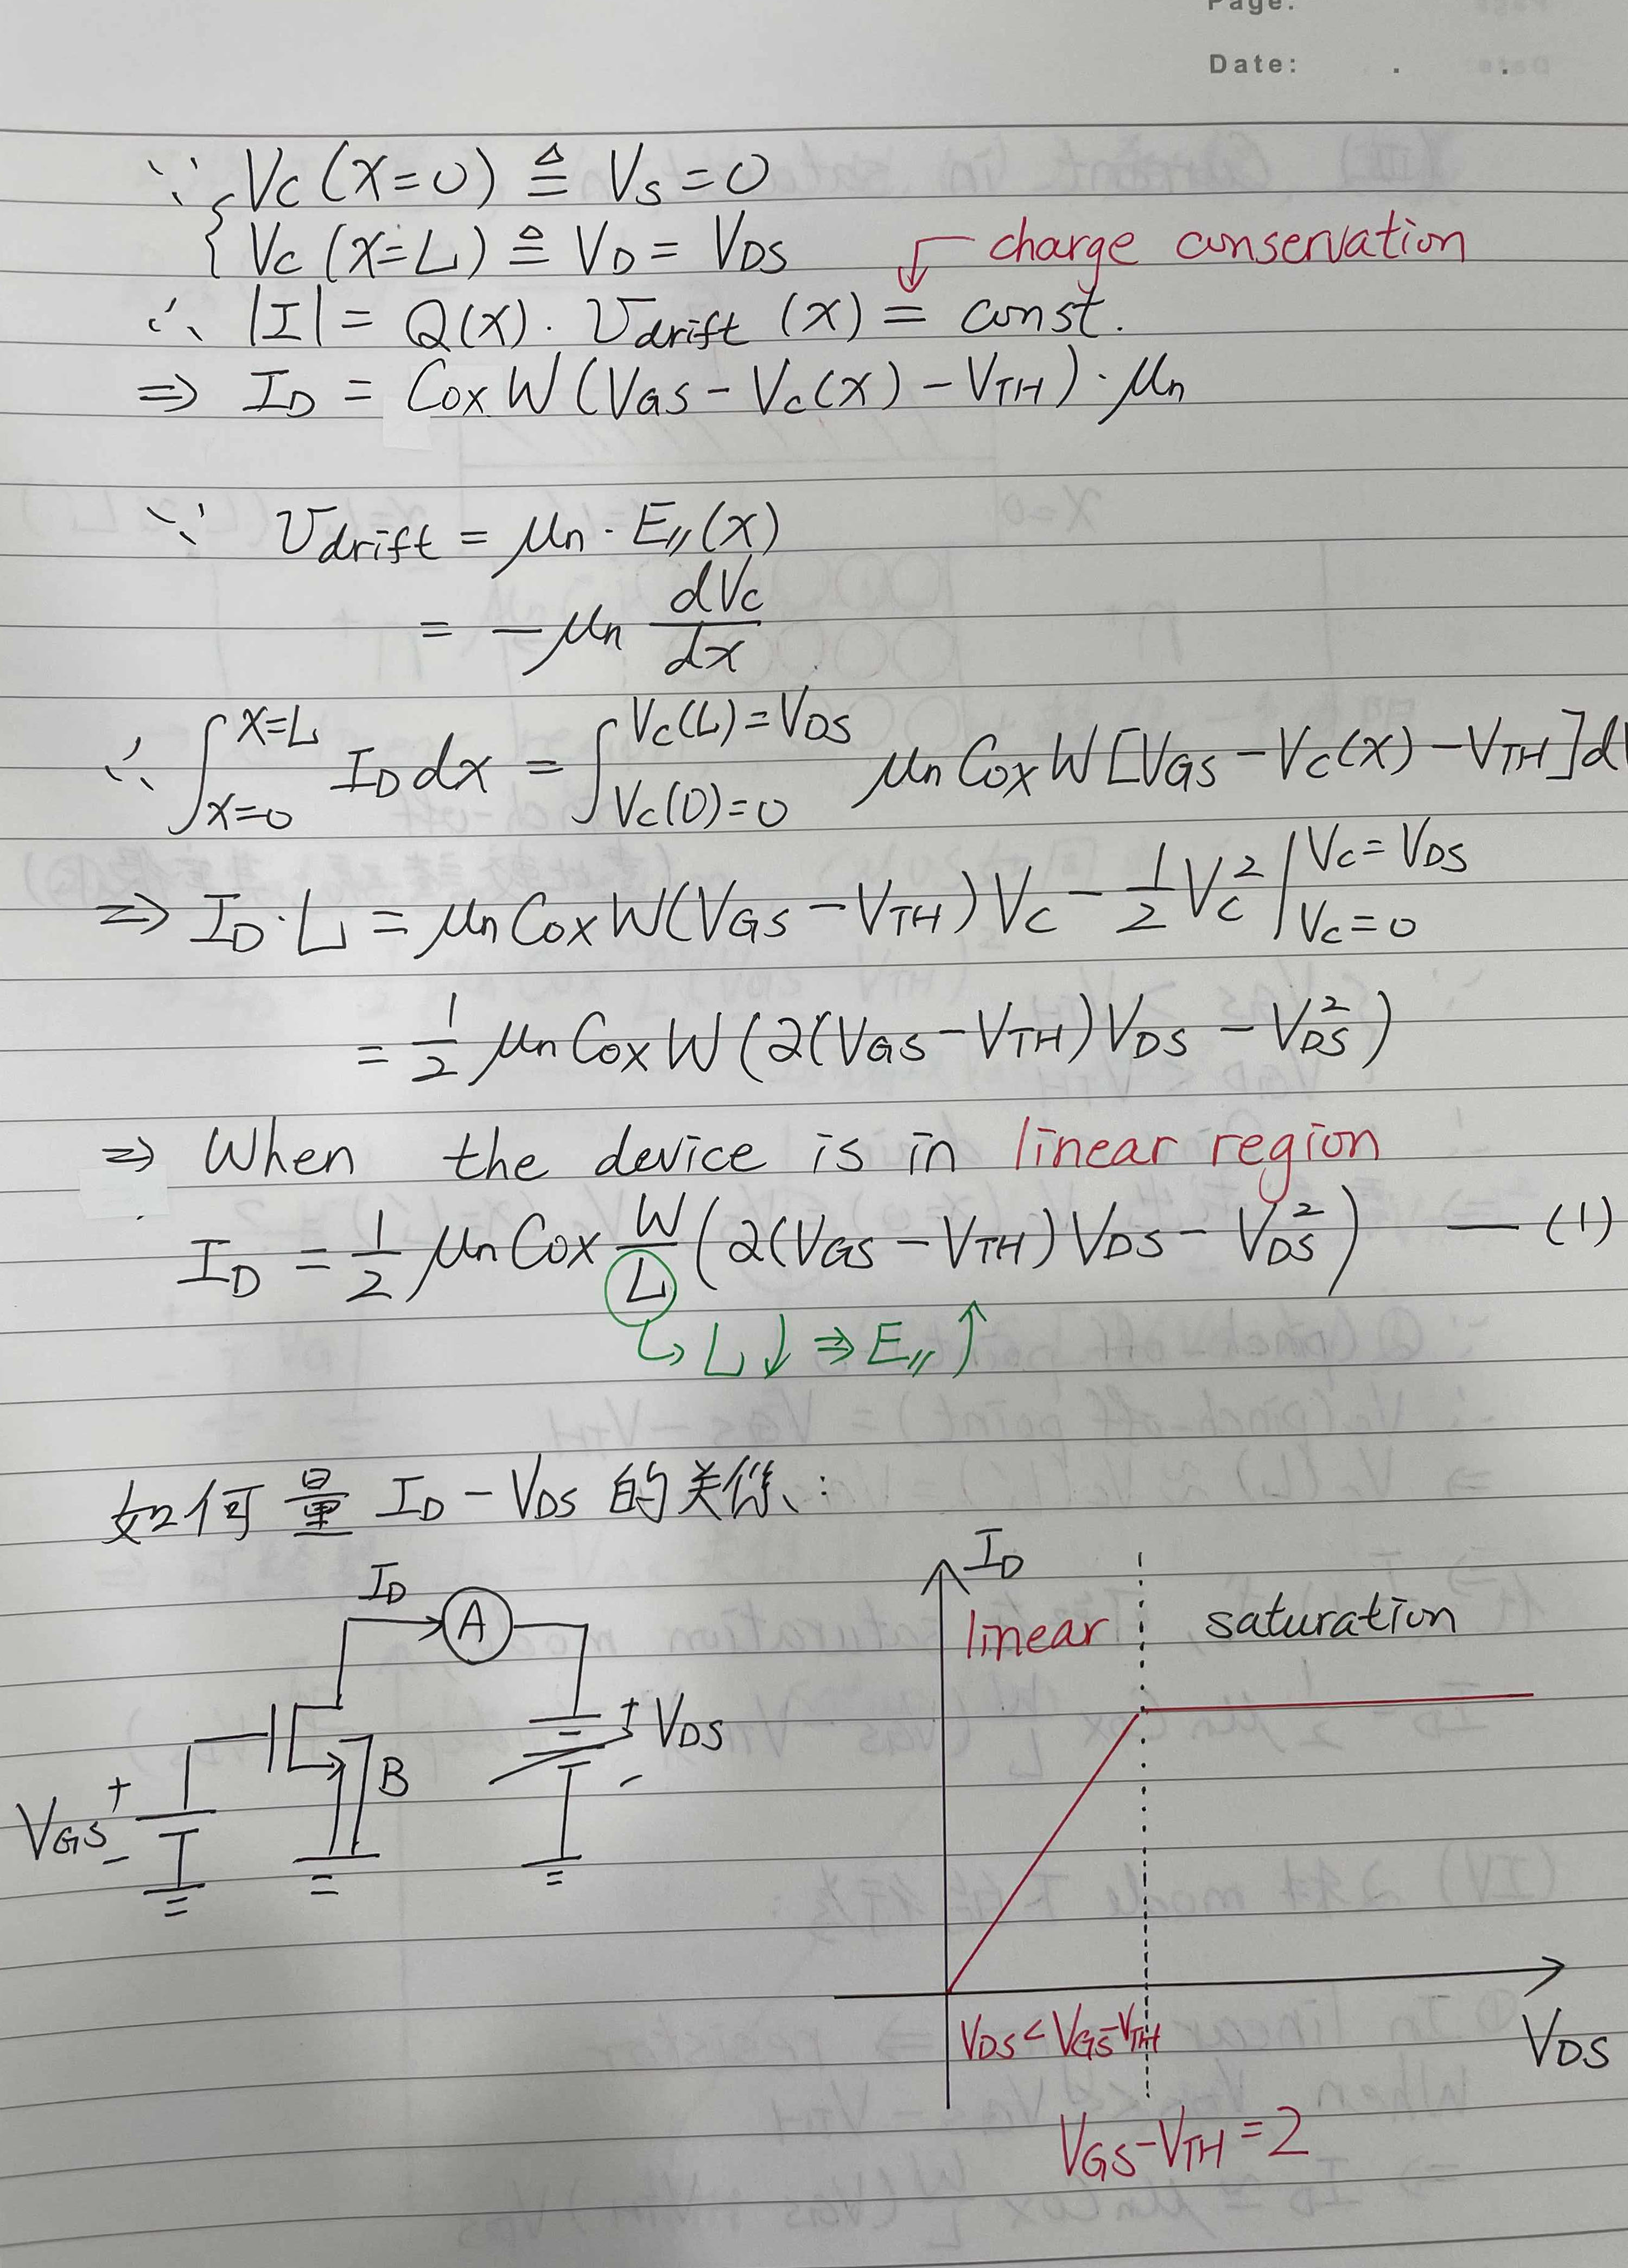 Page:
Date: . .
∵ { Vc (x=0) ≜ Vs = 0
Vc (x=L) ≜ VD = VDS
charge conservation
∴ |I| = Q(x) · Vdrift (x) = const.
⇒ ID = Cox W (VGS - Vc(x) - VTH) · μn
∵ Vdrift = μn · E//(x)
= - μn dVc/dx
∴ ∫_{x=0}^{x=L} ID dx = ∫_{Vc(0)=0}^{Vc(L)=VDS} μn Cox W [VGS - Vc(x) - VTH] dV
⇒ ID · L = μn Cox W (VGS - VTH) Vc - 1/2 Vc² |_{Vc=0}^{Vc=VDS}
= 1/2 μn Cox W (2(VGS - VTH) VDS - VDS²)
⇒ When the device is in linear region
ID = 1/2 μn Cox W/L (2(VGS - VTH) VDS - VDS²) — (1)
↳ L↓ ⇒ E// ↑
如何量 ID - VDS 的关係:
ID
A
VDS
+
-
B
VGS
+
-
ID
linear
saturation
VDS < VGS-VTH
VDS
VGS-VTH = 2